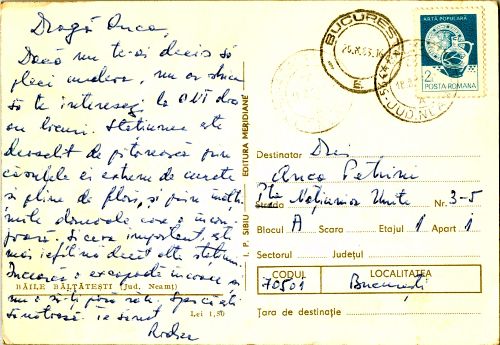 Dragă Anca,
Dacă nu te-ai decis să
pleci undeva, nu ar strica
să te interesezi la ONT dacă
au locuri. Stațiunea este
deosebit de pitorească prin
căsuțele ei extrem de curate
și pline de flori, și prin
domoale care o
Și ceea important, este
mai ieftină decât alte stațiuni.
Încearcă o escapadă încoace și
nu o să-ți pară rău.
Te sărut
Rodica
BĂILE BĂLTĂTEȘTI (Jud. Neamț)
Lei 1,50
I. P. SIBIU EDITURA MERIDIANE
BUCUREȘTI
E.
JUD. N
ARTĂ POPULARĂ
2L
POSTA ROMANA
Destinatar
Anca Petrini
Strada Națiunior Unite Nr. 3-5
Blocul A Scara Etajul 1 Apart 1
Sectorul Județul
CODUL LOCALITATEA
70501 București
Țara de destinație